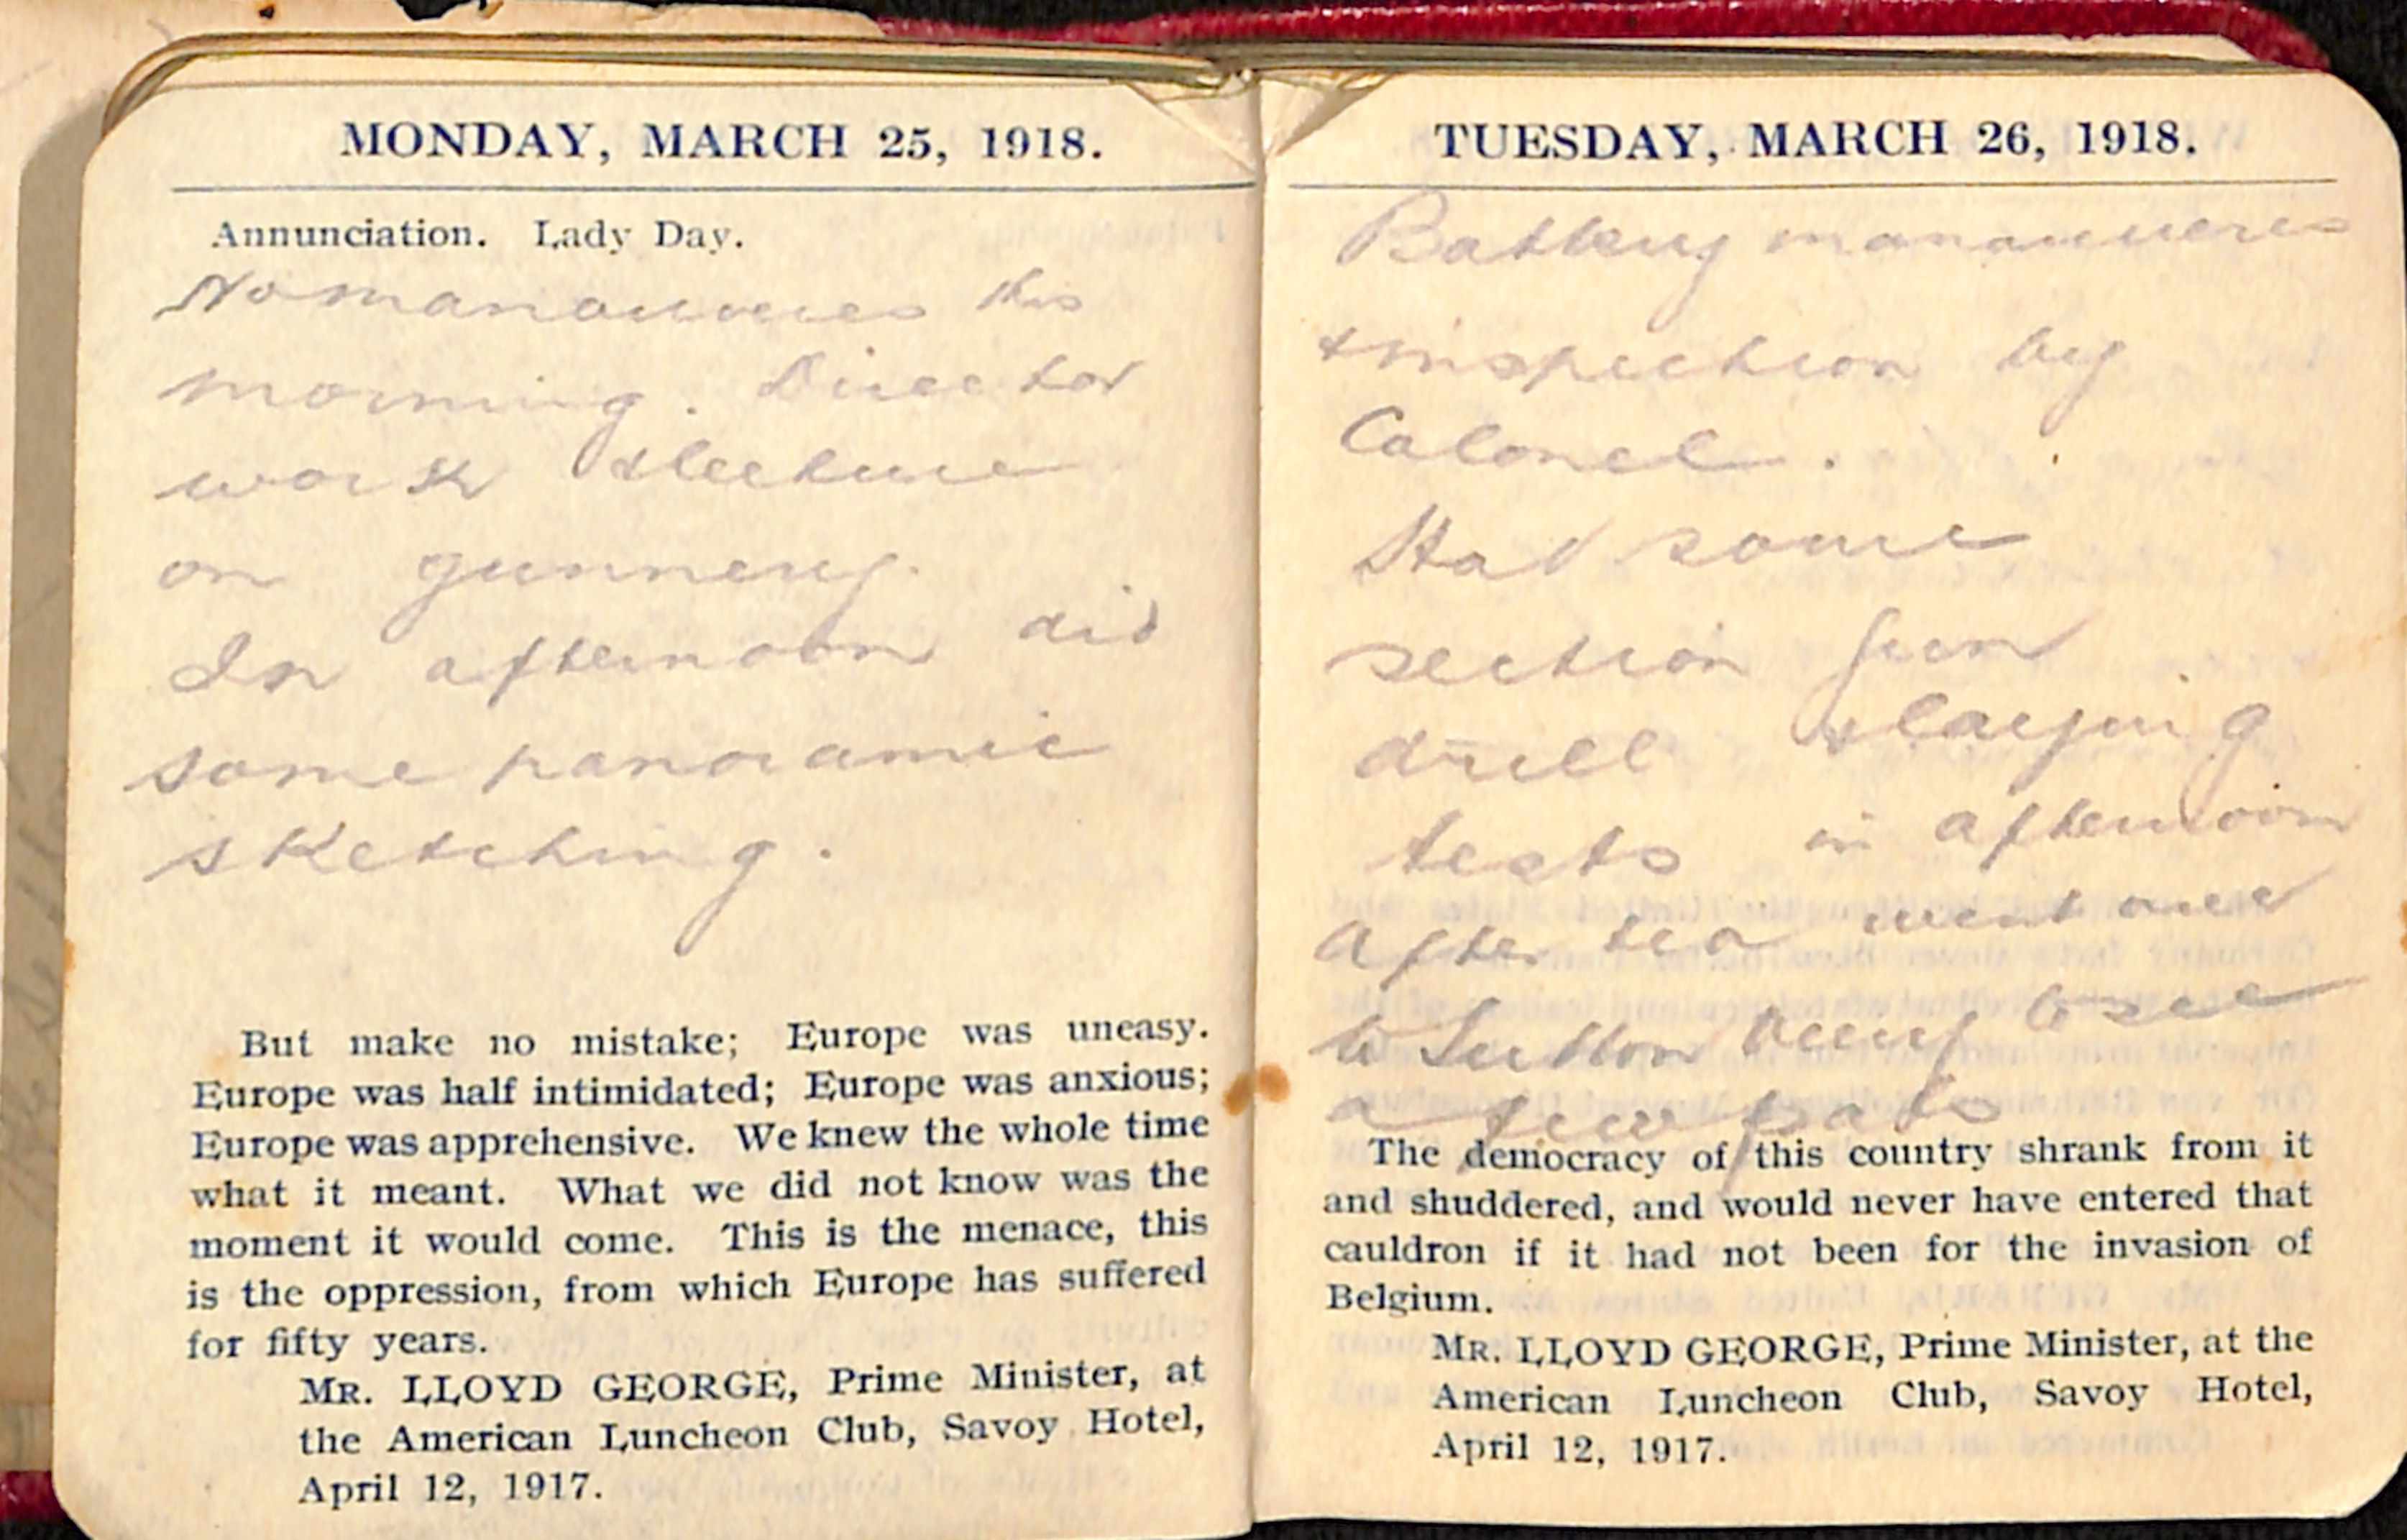 MONDAY, MARCH 25, 1918.
Annunciation. Lady Day.
No manouveres this
morning. Director
work & lecture
on gunnery.
In afternoon did
some panoramic
sketching.
But make no mistake; Europe was uneasy.
Europe was half intimidated; Europe was anxious;
Europe was apprehensive. We knew the whole time
what it meant. What we did not know was the
moment it would come. This is the menace, this
is the oppression, from which Europe has suffered
for fifty years.
MR. LLOYD GEORGE, Prime Minister, at
the American Luncheon Club, Savoy Hotel,
April 12, 1917.
TUESDAY, MARCH 26, 1918.
Battery manouveres
& inspection by
Colonel.
Had some
section gun
drill & laying
tests in afternoon
After tea went over
to Sutton Veny to see
a few pals
The democracy of this country shrank from it
and shuddered, and would never have entered that
cauldron if it had not been for the invasion of
Belgium.
MR. LLOYD GEORGE, Prime Minister, at the
American Luncheon Club, Savoy Hotel,
April 12, 1917.